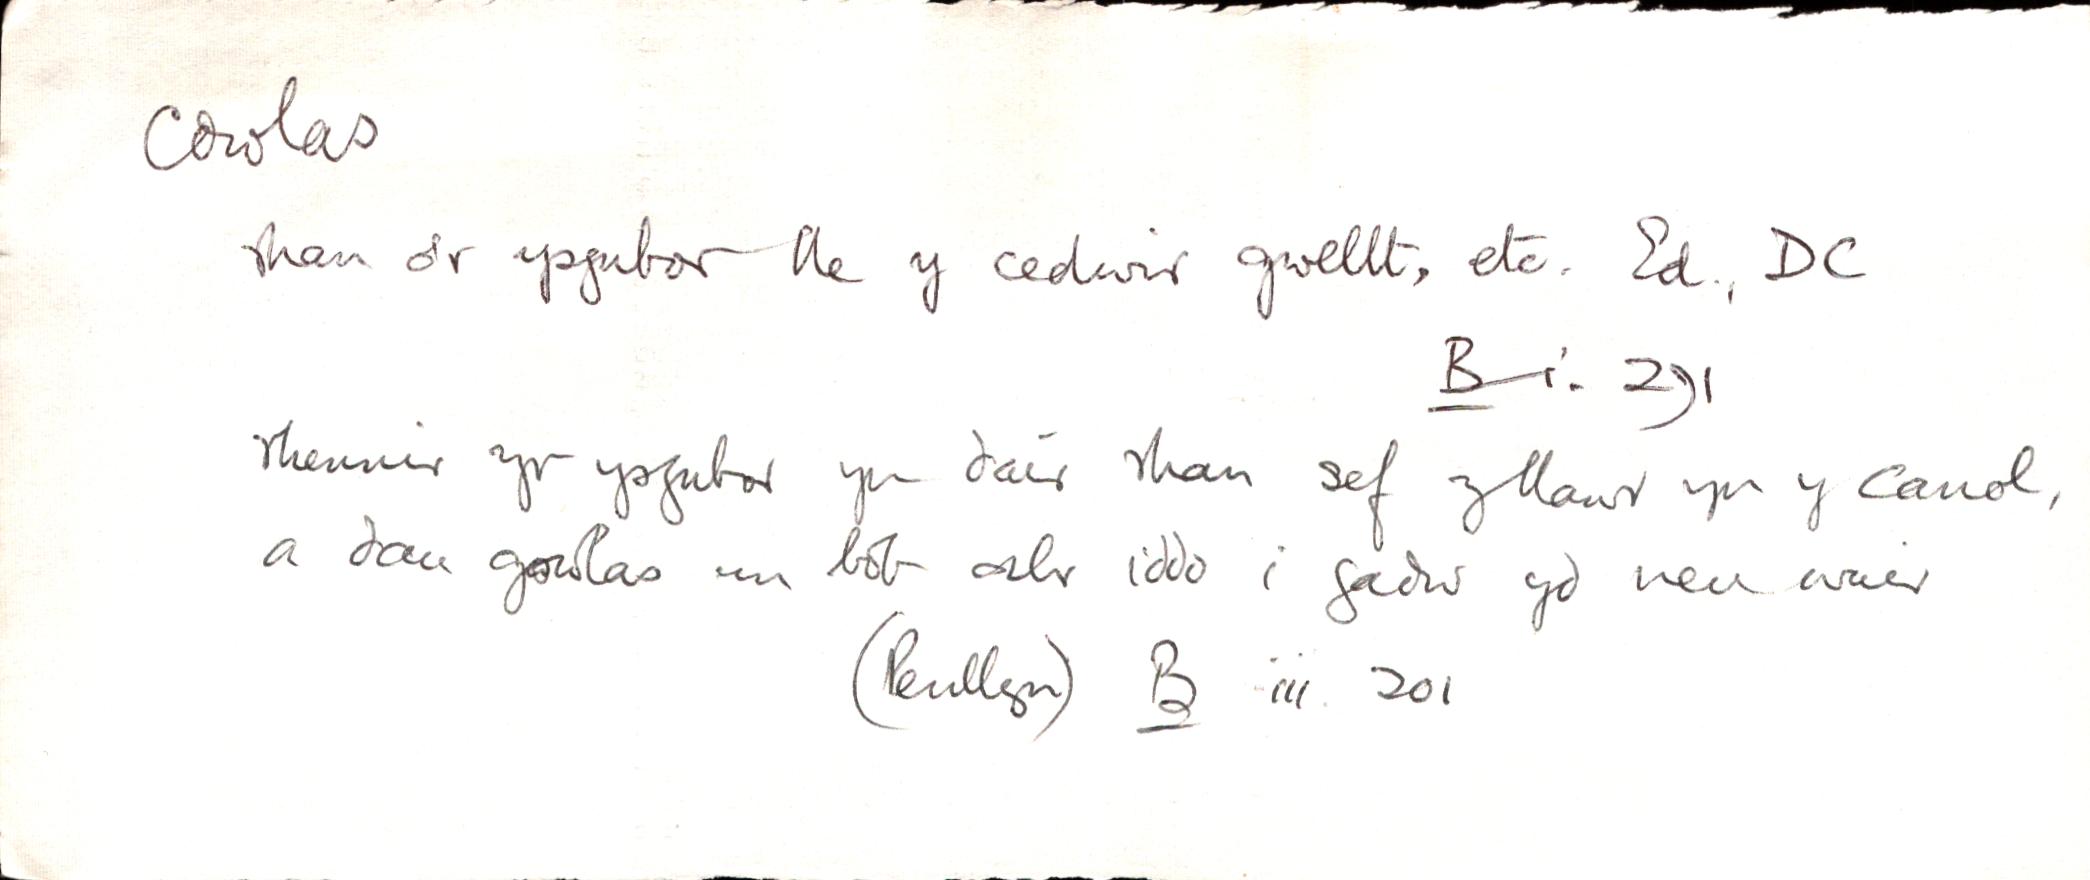 Cowlas
rhan o'r ysgubor lle y cedwir gwellt, etc. Ed., DC
B i. 291
rhennir yr ysgubor yn dair rhan sef y llawr yn y canol,
a dau gowlas un bob ochr iddo i gadw yd neu wair
(Penllyn) B iii. 201